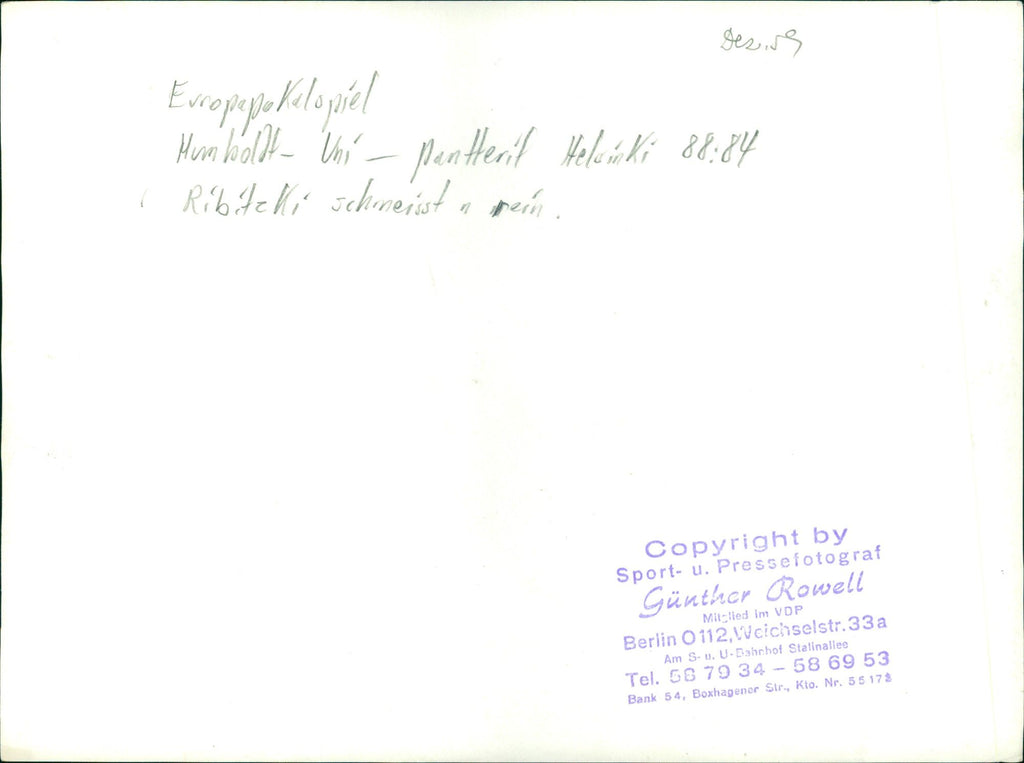 Dez. 59
Europapokalspiel
Humboldt- Uni — Pantterit Helsinki 88:84
Ribitzki schmeisst n rein.
Copyright by
Sport- u. Pressefotograf
Günther Rowell
Mitglied im VDP
Berlin O 112, Weichselstr. 33a
Am S- u. U-Bahnhof Stalinallee
Tel. 58 79 34 – 58 69 53
Bank 54, Boxhagener Str., Kto. Nr. 55172